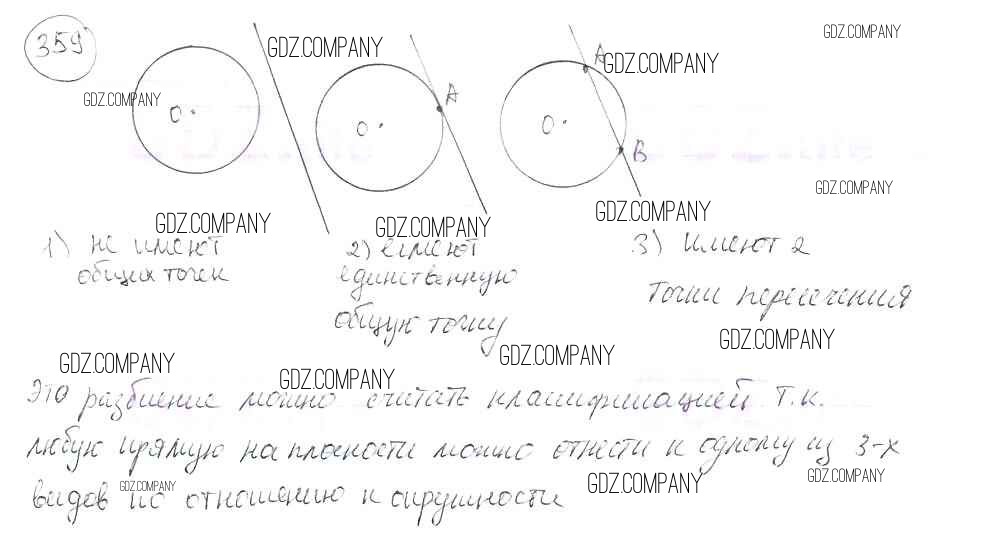 359
GDZ.COMPANY
GDZ.COMPANY
GDZ.COMPANY
GDZ.COMPANY
O
O
A
O
A
B
GDZ.COMPANY
GDZ.COMPANY
GDZ.COMPANY
GDZ.COMPANY
1) не имеют
общих точек
2) имеют
единственную
общую точку
3) имеют 2
точки пересечения
GDZ.COMPANY
GDZ.COMPANY
GDZ.COMPANY
GDZ.COMPANY
Это разбиение можно считать классификацией т.к.
любую прямую на плоскости можно отнести к одному из 3-х
видов по отношению к окружности
GDZ.COMPANY
GDZ.COMPANY
GDZ.COMPANY